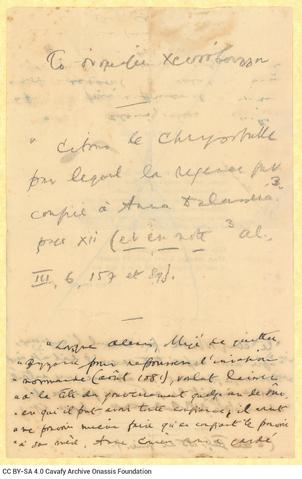 Το
" Citons le Chrysobulle
par lequel la régence fut
confiée à Anna Dalassena ³
page XII (et en note ³ Al.
III, 6, 157 et sqq).
" Lorsque Alexis, obligé de quitter
" Byzance pour repousser l'invasion
" normande (août 1081), voulut laisser
" à la tête du gouvernement quelqu'un de sûr
" en qui il pût avoir toute confiance, il crut
" ne pouvoir mieux faire qu'en confiant le pouvoir
" à sa mère. Anne a gardé
CC BY-SA 4.0 Cavafy Archive Onassis Foundation